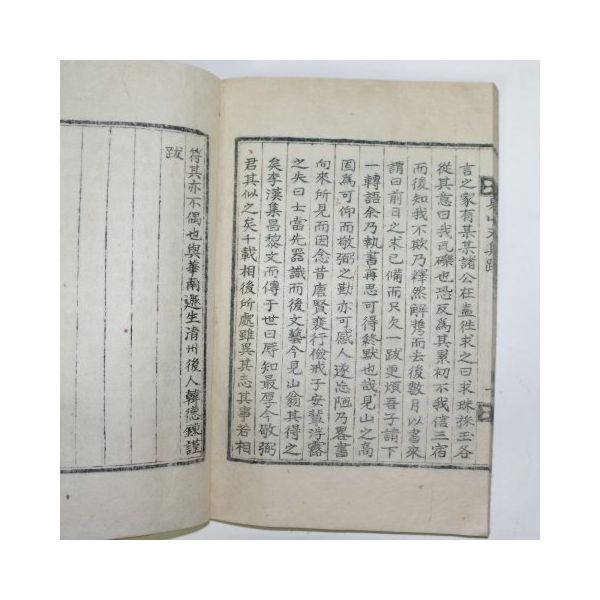 言之家有某某諸公在盍徃求之曰求珠探玉各
從其意曰我瓦礫也恐反爲其累初不我信三宿
而後知我不欺乃釋然解携而去後數月以書來
謂曰前日之求已備而只欠一跋更煩吾子請下
一轉語余乃執書再思可得終默也哉見山之高
固爲可仰而敬弼之勤亦可感人遂忘陋乃畧書
向來所見而因念昔唐賢裴行儉戒子安輩浮露
之失曰士當先器識而後文藝今見山翁其得之
矣李漢集昌黎文而傳于世曰辱知最厚今敬弼
君其似之矣千載相後所處雖異其志其事若相
符其亦不偶也與華南遯生淸州後人韓德鍊謹
跋
見山文集跋